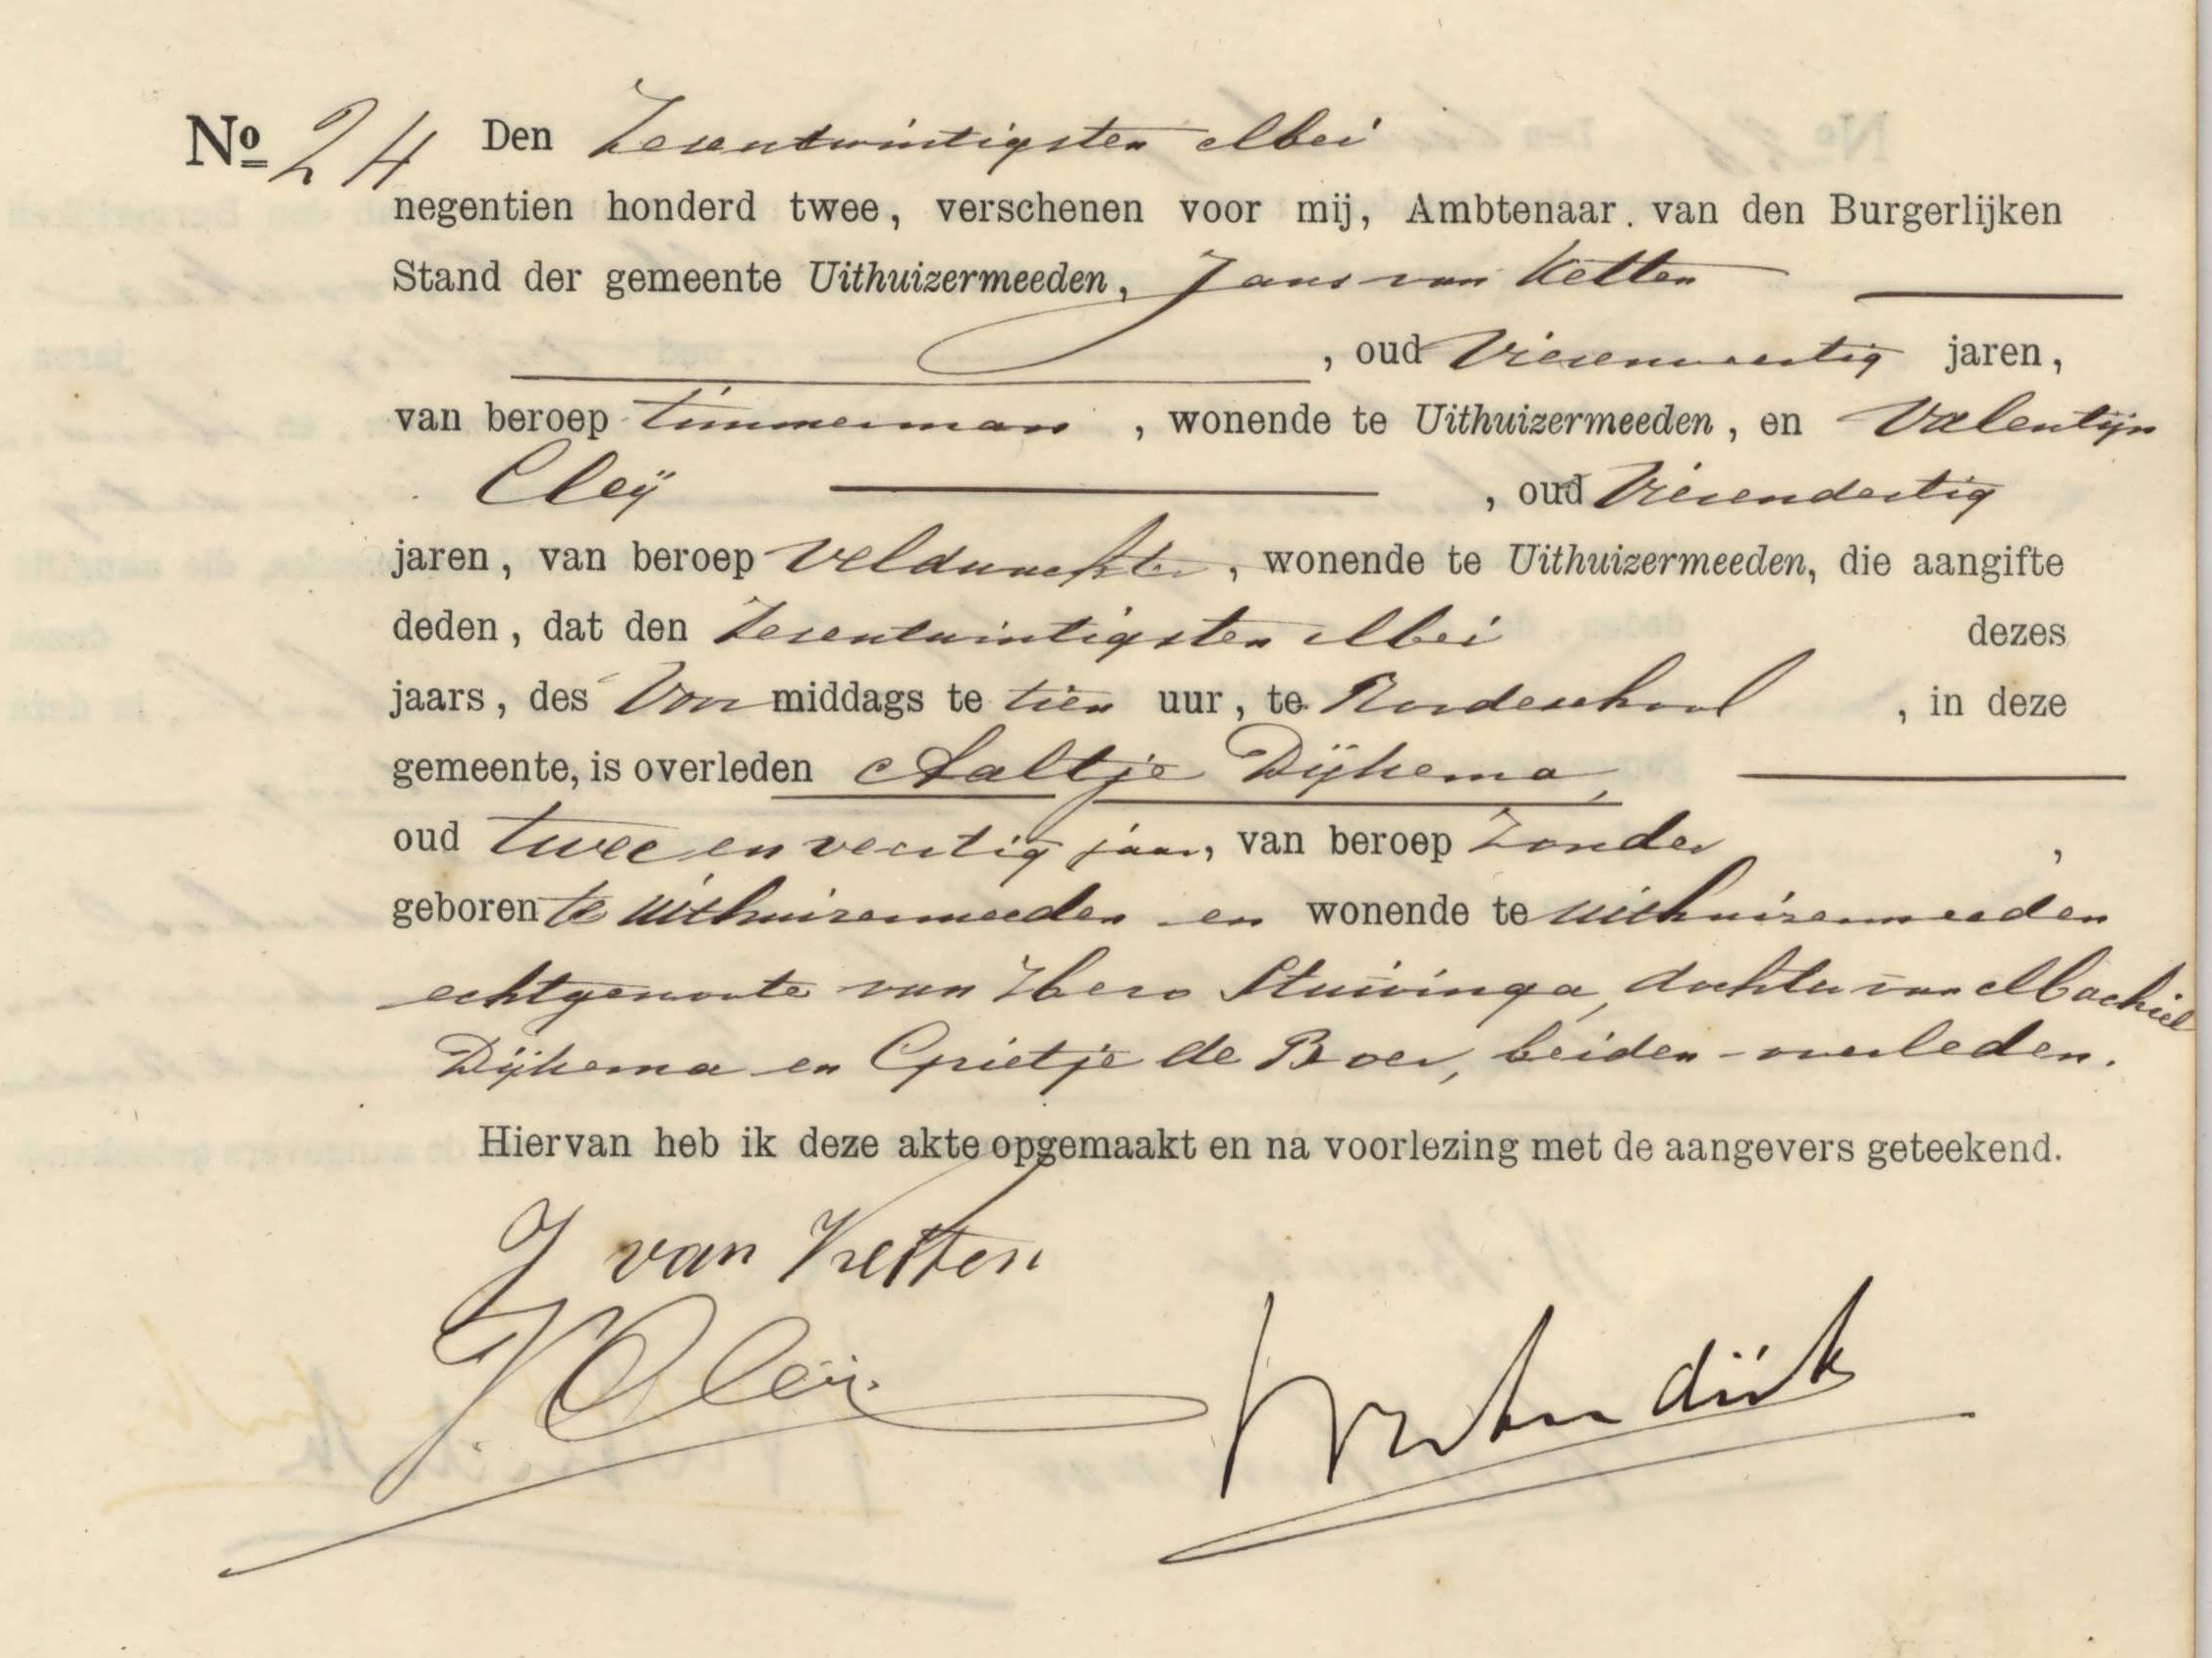 No 24 Den Zesentwintigsten Mei
negentien honderd twee, verschenen voor mij, Ambtenaar van den Burgerlijken
Stand der gemeente Uithuizermeeden, Jans van Ketten
, oud Vierenveertig jaren,
van beroep timmerman, wonende te Uithuizermeeden, en Valentijn
Cleij, oud Vierendertig
jaren, van beroep veldwachter, wonende te Uithuizermeeden, die aangifte
deden, dat den Zesentwintigsten Mei dezes
jaars, des Voormiddags te tien uur, te Roodeschool, in deze
gemeente, is overleden Aaltje Dijkema,
oud twee en veertig jaar, van beroep zonder,
geboren te Uithuizermeeden en wonende te Uithuizermeeden
echtgenoote van Ebero Stuivinga, dochter van Machiel
Dijkema en Grietje de Boer, beiden overleden.
Hiervan heb ik deze akte opgemaakt en na voorlezing met de aangevers geteekend.
J van Ketten
V. Cleij.